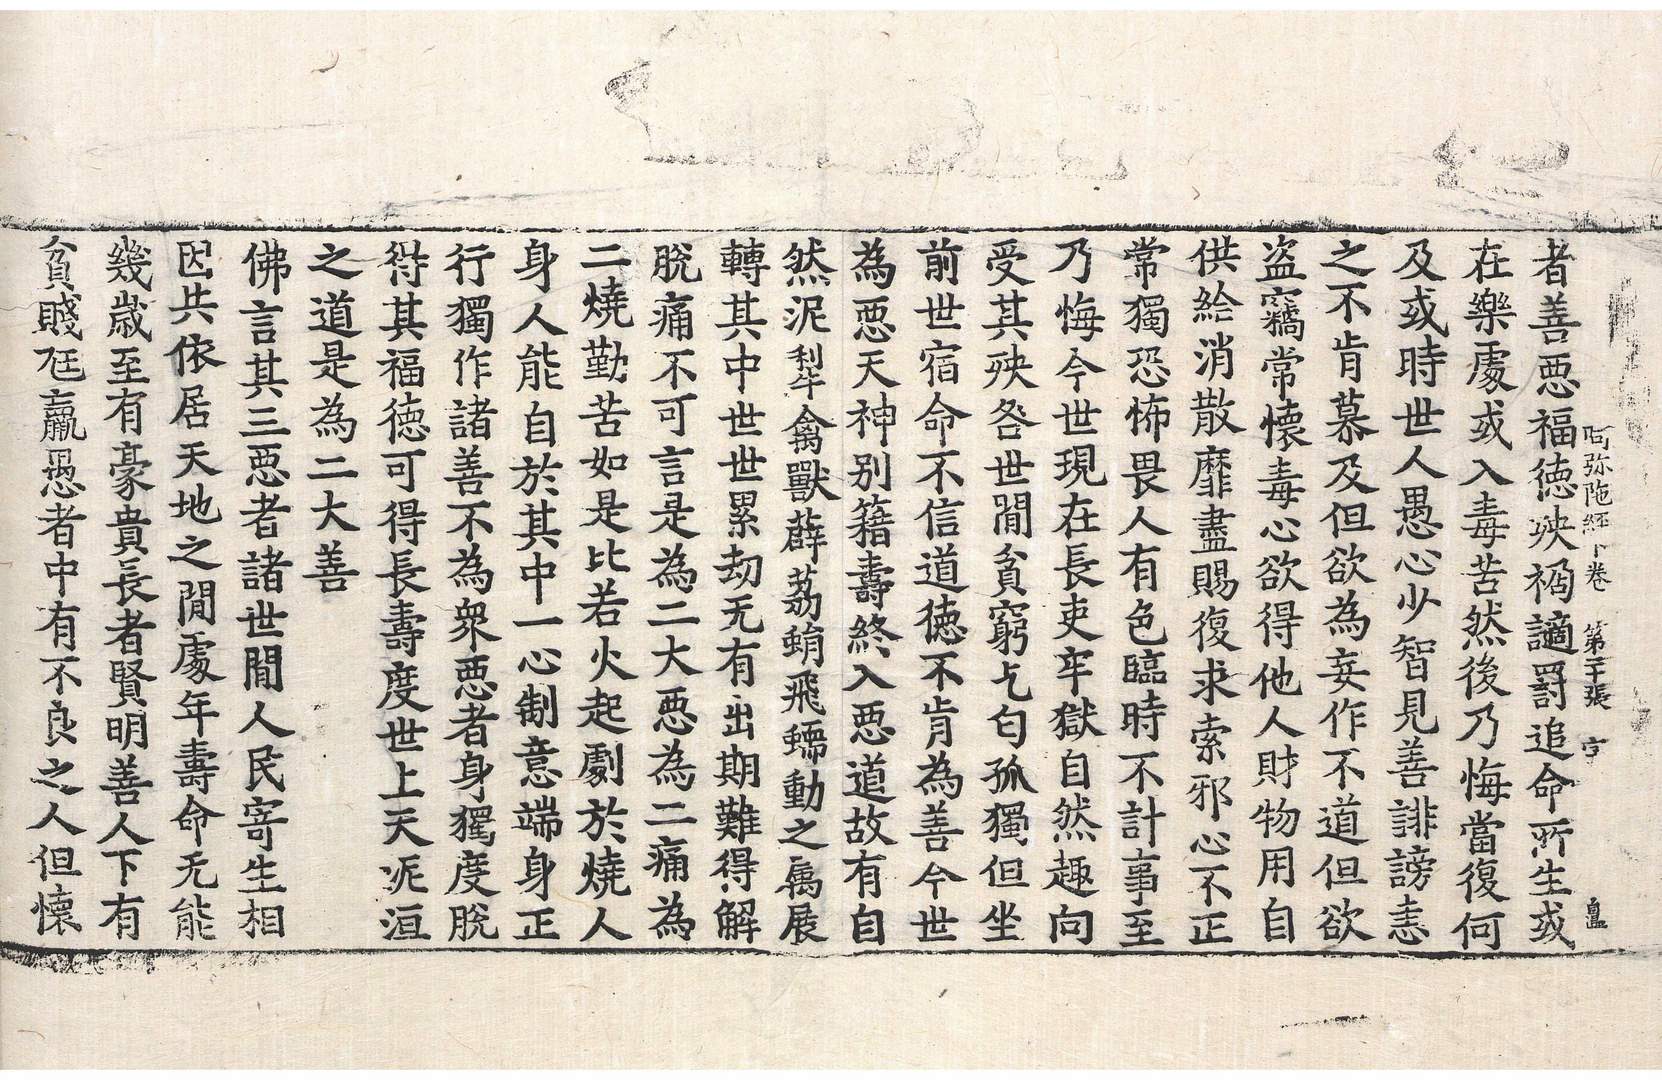 阿弥陁經下卷 第二十張 字
者善惡福德殃禍讁罰追命所生或
在樂處或入毒苦然後乃悔當復何
及或時世人愚心少智見善誹謗恚
之不肯慕及但欲為妄作不道但欲
盗竊常懷毒心欲得他人財物用自
供給消散靡盡賜復求索邪心不正
常獨恐怖畏人有色臨時不計事至
乃悔今世現在長吏牢獄自然趣向
受其殃咎世閒貧窮乞匄孤獨但坐
前世宿命不信道德不肯為善今世
為惡天神別籍壽終入惡道故有自
然泥犁禽獸薜荔蜎飛蠕動之屬展
轉其中世世累劫无有出期難得解
脫痛不可言是為二大惡為二痛為
二燒勤苦如是比若火起劇於燒人
身人能自於其中一心制意端身正
行獨作諸善不為衆惡者身獨度脫
得其福德可得長壽度世上天泥洹
之道是為二大善
佛言其三惡者諸世閒人民寄生相
因共依居天地之閒處年壽命无能
幾歲至有豪貴長者賢明善人下有
貧賤尫羸愚者中有不良之人但懷